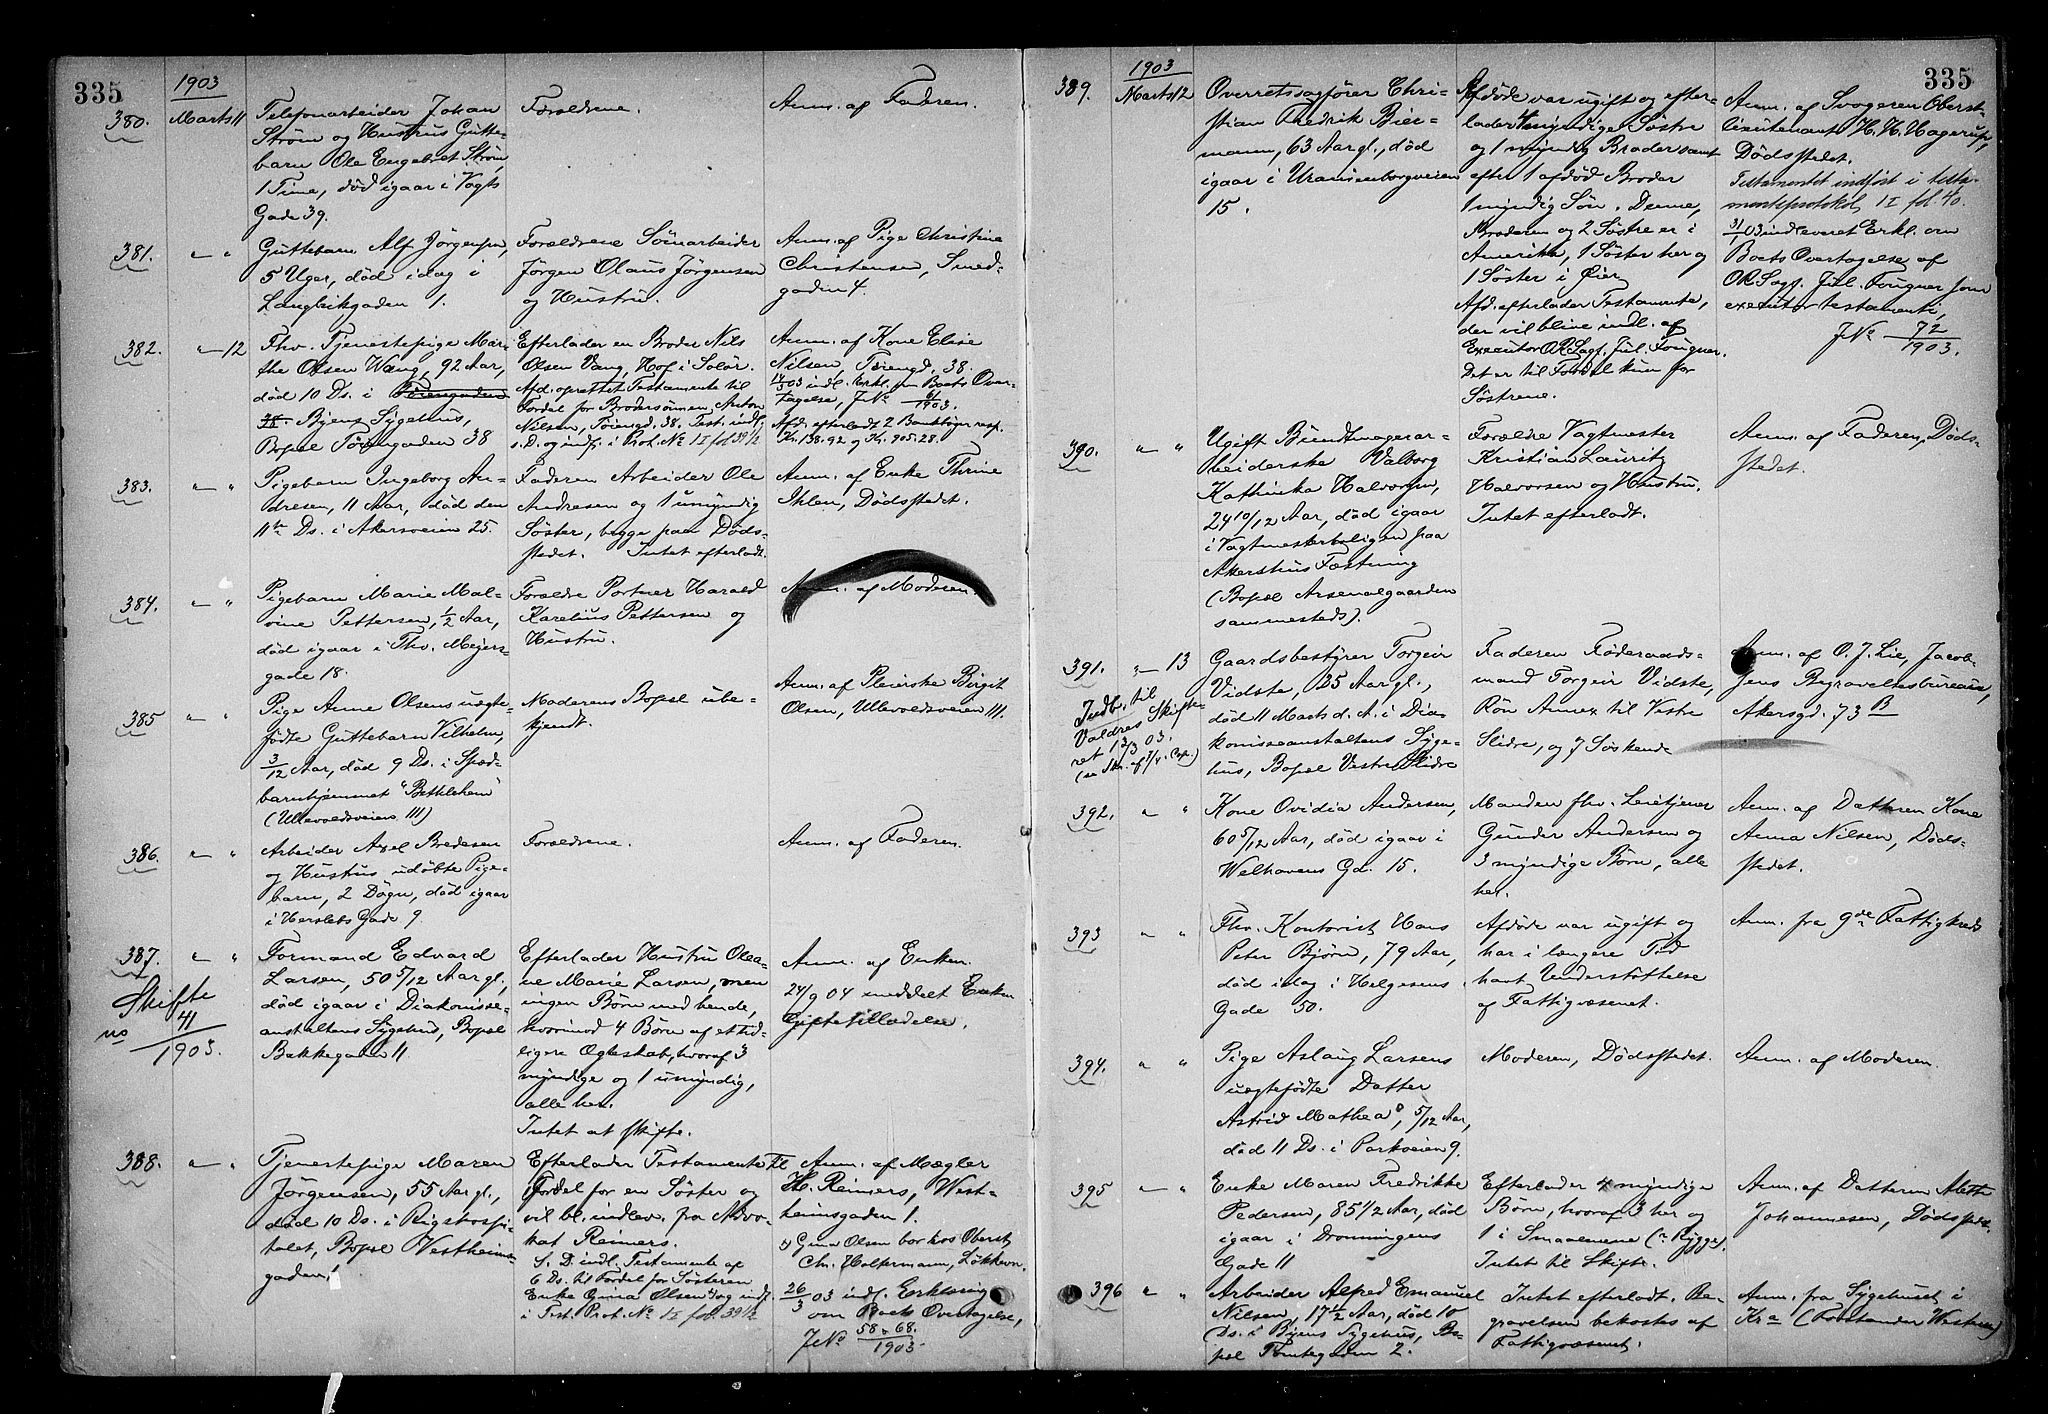 335
1903
380.
Marts 11
Telefonarbeider Johan
Strøm og Hustrus Gutte-
barn Ole Engebret Strøm,
1 Time, død igaar i Vogts
Gade 39.
Forældrene.
Anm. af Faderen.
381.
" "
Guttebarn Alf Jørgensen,
5 Uger, død idag i
Langlikgaden 1.
Forældrene Sømarbeider
Jørgen Olaus Jørgensen
og Hustru.
Anm. af Pige Christine
Christensen, Smed-
gaden 4.
382.
" 12
Fhv. Tjenestepige Mar-
the Olsen Wang, 92 Aar,
død 10 Ds. i Tøiengaden
38. Byens Sygehus,
Bopæl Tøiengaden 38
Efterlader en Broder Nils
Olsen Vang, Hof i Solør.
Afd. oprettet Testamente til
Fordel for Brodersønnen Anton
Nilsen, Tøiengd. 38. Test. indl.
s. D. og indf. i Prot. No I fol 39 1/2
Anm. af Kone Elise
Nilsen, Tøiengd. 38.
14/3 03 indl. Erkl. om Boets Over-
tagelse, J No 61/1903.
Afd. efterladt 2 Bankbøger resp.
Kr. 138.92 og Kr. 905.28.
383.
" "
Pigebarn Ingeborg An-
dresen, 11 Aar, død den
11te Ds. i Akersveien 25.
Faderen Arbeider Ole
Andresen og 1 umyndig
Søster, begge paa Døds-
stedet. Intet efterladt.
Anm. af Enke Thrine
Ihlen, Dødsstedet.
384.
" "
Pigebarn Marie Mal-
vine Pettersen, 1/2 Aar,
død igaar i Thv. Meyers-
gade 18.
Forældre Portner Harald
Karelius Pettersen og
Hustru.
Anm. af Moderen.
385
" "
Pige Anne Olsens uægte-
fødte Guttebarn Vilhelm,
3/12 Aar, død 9 Ds. i Spæd-
barnhjemmet "Bethlehem"
(Ullevoldsveien 111)
Moderens Bopæl ube-
kjendt.
Anm. af Pleierske Birgit
Olsen, Ullevoldsveien 111.
386.
" "
Arbeider Axel Bredesen
og Hustrus udøbte Pige-
barn, 2 Døgn, død igaar
i Herslebs Gade 9.
Forældrene.
Anm. af Faderen.
387.
" "
Skifte
no 41/1903.
Formand Edvard
Larsen, 50 5/12 Aar gl.,
død igaar i Diakonisse-
anstaltens Sygehus, Bopæl
Bakkegaden 11
Efterlader Hustru Olea-
ne Marie Larsen, men
ingen Børn med hende,
hvorimod 4 Børn af et tid-
ligere Ægteskab, hvoraf 3
myndige og 1 umyndig,
alle her.
Intet at skifte.
Anm. af Enken.
24/9 04 meddelt Enken
Giftetilladelse.
388.
" "
Tjenestepige Maren
Jørgensen, 55 Aar gl.,
død 10 Ds. i Rigshospi-
talet, Bopæl Vestheim-
gaden 1
Efterlader Testamente til
Fordel for en Søster og
vil bl. indlev. fra Advo-
kat Reimers.
S. D. indl. Testamente af
6 Ds. til Fordel for Søsteren
Enke Gina Olsen x) og indf.
i Test. Prot. No I fol. 39 1/2
Anm. af Mægler
H. Reimers, Vest-
heimsgaden 1.
x) Gina Olsen bor hos Oberst
Chr. Holtermann, Løkkevn.
26/3 03 indl. Erklæring
om Boets Overtagelse,
J No 58 & 68./1903.
335
1903
389.
Marts 12
Overretssagfører Chri-
stian Fredrik Bier-
mann, 63 Aar gl., død
igaar i Uranienborgveien
15.
Afdøde var ugift og efter-
lader 4 myndige Søstre
og 1 myndig Broder samt
efter 1 afdød Broder
1 myndig Søn. Denne,
Broderen og 2 Søstre er i
Amerika, 1 Søster her og
1 Søster i Øier
Afd. efterlader Testamente,
der vil blive indl. af
Executor OR.Sagf. Jul. Fougner.
Det er til Fordel kun for
Søstrene.
Anm. af Svogeren Oberst-
lieutenant H. H. Hagerup,
Dødsstedet.
Testamentet indført i testa-
menteprotokol I fol. 40.
31/ 03 indleveret Erkl. om
Boets Overtagelse af
OR.Sagf. Jul. Fougner som
executor testamenti,
J No 72/1903.
390.
" "
Ugift Bundtmagerar-
beiderske Valborg
Kathinka Halvorsen,
24 10/12 Aar, død igaar
i Vagtmesterboligen paa
Akershus Fæstning
(Bopæl Arsenalgaarden
sammesteds).
Forældre Vagtmester
Kristian Lauritz
Halvorsen og Hustru.
Intet efterladt.
Anm. af Faderen, Døds-
stedet.
391.
" 13
Indb. til
Valdres Skifte-
ret 13/3 03.
Gaardsbestyrer Torgeir
Vidste, 25 Aar gl.,
død 11 Marts d. A. i Dia-
konisseanstaltens Syge-
hus, Bopæl Vestre Slidre
Faderen Føderaads-
mand Torgeir Vidste,
Røn Annex til Vestre
Slidre, og 7 Søskende
Anm. af O. J. Lie, Jacob-
sens Begravelsesbureau,
Akersgd. 73 B
392.
" "
Kone Ovidia Andersen,
60 5/12 Aar, død igaar i
Welhavens Gd. 15.
Manden fhv. Leietjener
Gunder Andersen og
3 myndige Børn, alle
her.
Anm. af Dattren Kone
Anna Nilsen, Døds-
stedet.
393
" "
Fhv. Kontorist Hans
Peter Bjørn, 79 Aar,
død idag i Helgesens
Gade 50.
Afdøde var ugift og
har i længere Tid
havt Understøttelse
af Fattigvæsenet.
Anm. fra 9de Fattigkreds
394.
" "
Pige Aslaug Larsens
uægtefødte Datter
Astrid Mathea, 5/12 Aar,
død 11 Ds. i Parkveien 9.
Moderen, Dødsstedet.
Anm. af Moderen.
395
" "
Enke Maren Fredrikke
Pedersen, 85 1/2 Aar, død
igaar i Dronningens
Gade 11
Efterlader 4 myndige
Børn, hvoraf 3 her og
1 i Smaalenene (Rygge).
Intet til Skifte.
Anm. af Datteren Alette
Johannesen, Dødsstedet.
396
" "
Arbeider Alfred Emanuel
Nilsen, 17 1/2 Aar, død 10
Ds. i Byens Sygehus, Bo-
pæl Tomtegaden 2.
Intet efterladt. Be-
gravelsen bekostes af
Fattigvæsenet.
Anm. fra Sygehuset i
Kra (Forstander )